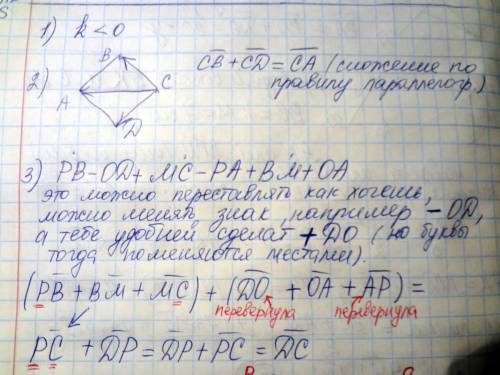 1) k < 0
2) B A C D
C̅B̅ + C̅D̅ = C̅A̅ (сложение по
правилу параллелогр.)
3) P̅B̅ - OD + MC - PA + BM + OA
это можно переставлять как хочешь,
можно менять знак, например - OD,
а тебе удобней сделат + DO (но буквы
тогда поменяются местами).
(P̅B̅ + B̅M̅ + M̅C̅) + (D̅O̅ + O̅A̅ + A̅P̅) =
перевернула перевернула
P̅C̅ + D̅P̅ = D̅P̅ + PC = D̅C̅